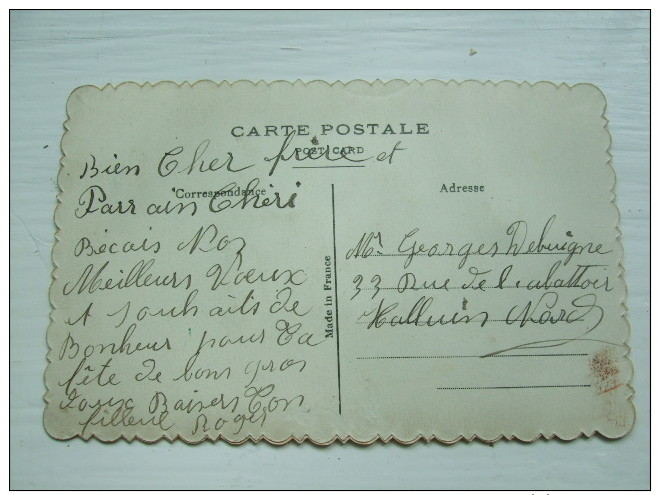 CARTE POSTALE
POST CARD
Correspondance
Adresse
Made in France
Bien Cher frère et
Parrain Chéri
Récois Nos
Meilleurs Voeux
et souhaits de
Bonheur pour Ta
fête de bons gros
doux Baisers Ton
filleul Roger
Mr Georges Debuigne
33 Rue de l'abattoir
Halluin Nord